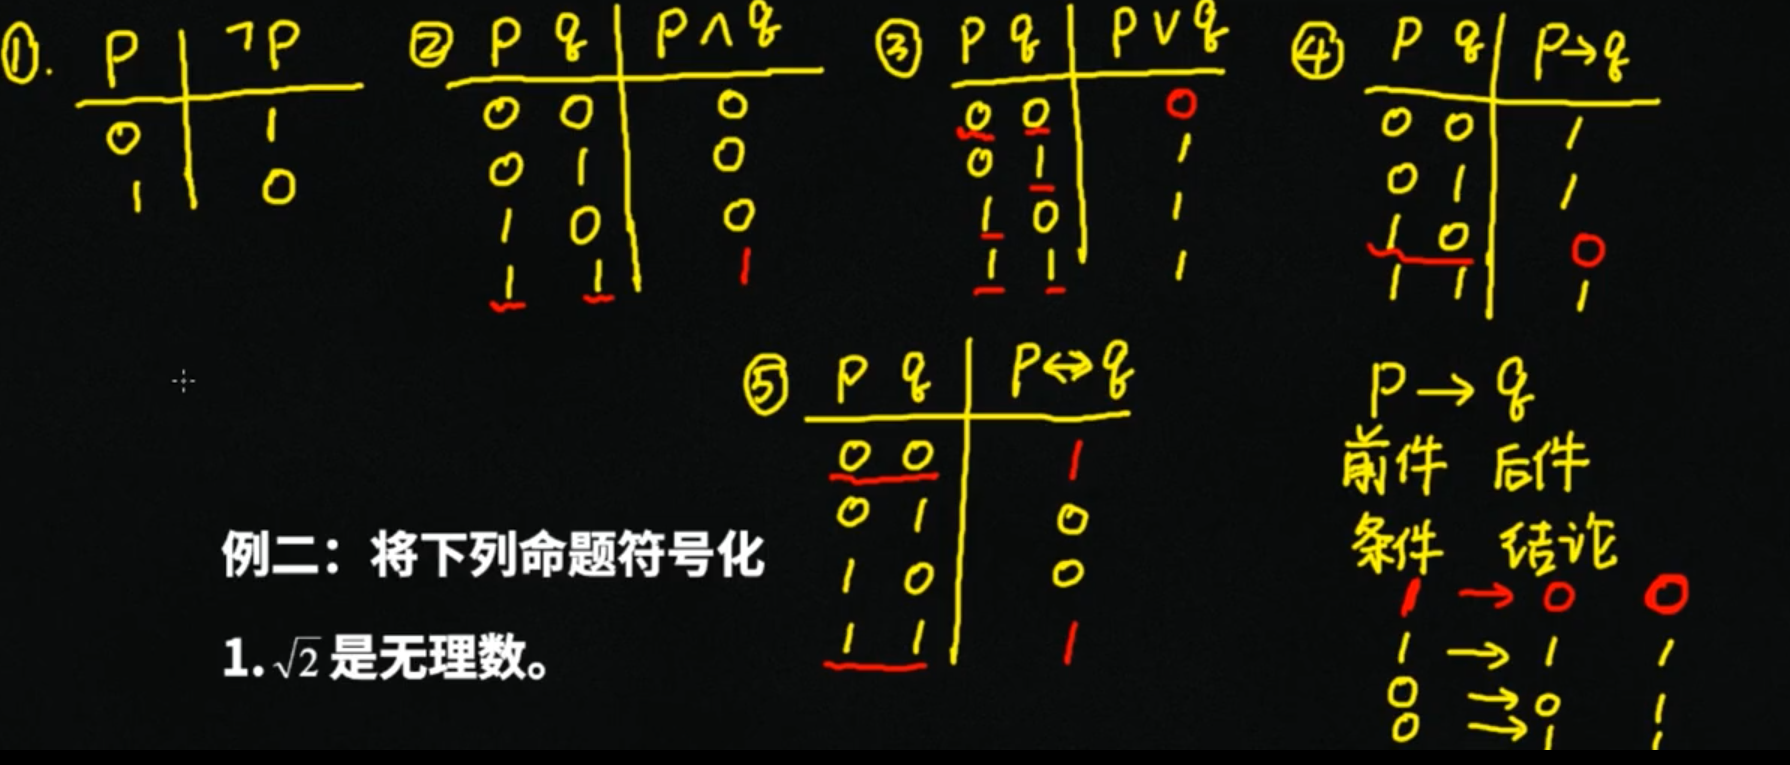 ①. p ¬p
0 1
1 0
② p q p∧q
0 0 0
0 1 0
1 0 0
1 1 1
③ p q p∨q
0 0 0
0 1 1
1 0 1
1 1 1
④ p q p→q
0 0 1
0 1 1
1 0 0
1 1 1
⑤ p q p↔q
0 0 1
0 1 0
1 0 0
1 1 1
p → q
前件 后件
条件 结论
1 → 0 0
1 → 1 1
0 → 0 1
0 → 1 1
例二：将下列命题符号化
1. √2 是无理数。